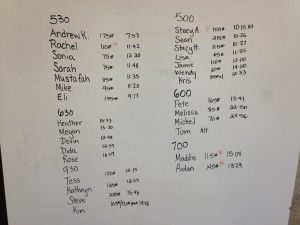 530
Andrew K. 175# 7:53
Rachel 110# 11:42
Sonia 75# 12:20
Sarah 75# 11:48
Mustafah 85# 11:35
Mike 95# 11:20
Eli 145# 9:17
630
Heather
Megan
Devin
Dida
Rose
930
Tess 120# 12:15
Kathryn 125# 12:05
Steve 230# 15:46
Kim
500
Stacy A.
Sean 215# 10:26
Stacy H. 115# 10:27
Lisa 65# 11:25
Jamie 110# 12:00
Wendy 100# 14:00
Kris 12:33
600
Pete 165# 13:41
Melissa 85# 22:00
Michel 70# 23:56
Tom Alt
700
Maddie 115# 15:04
Aidan 145# 13:29